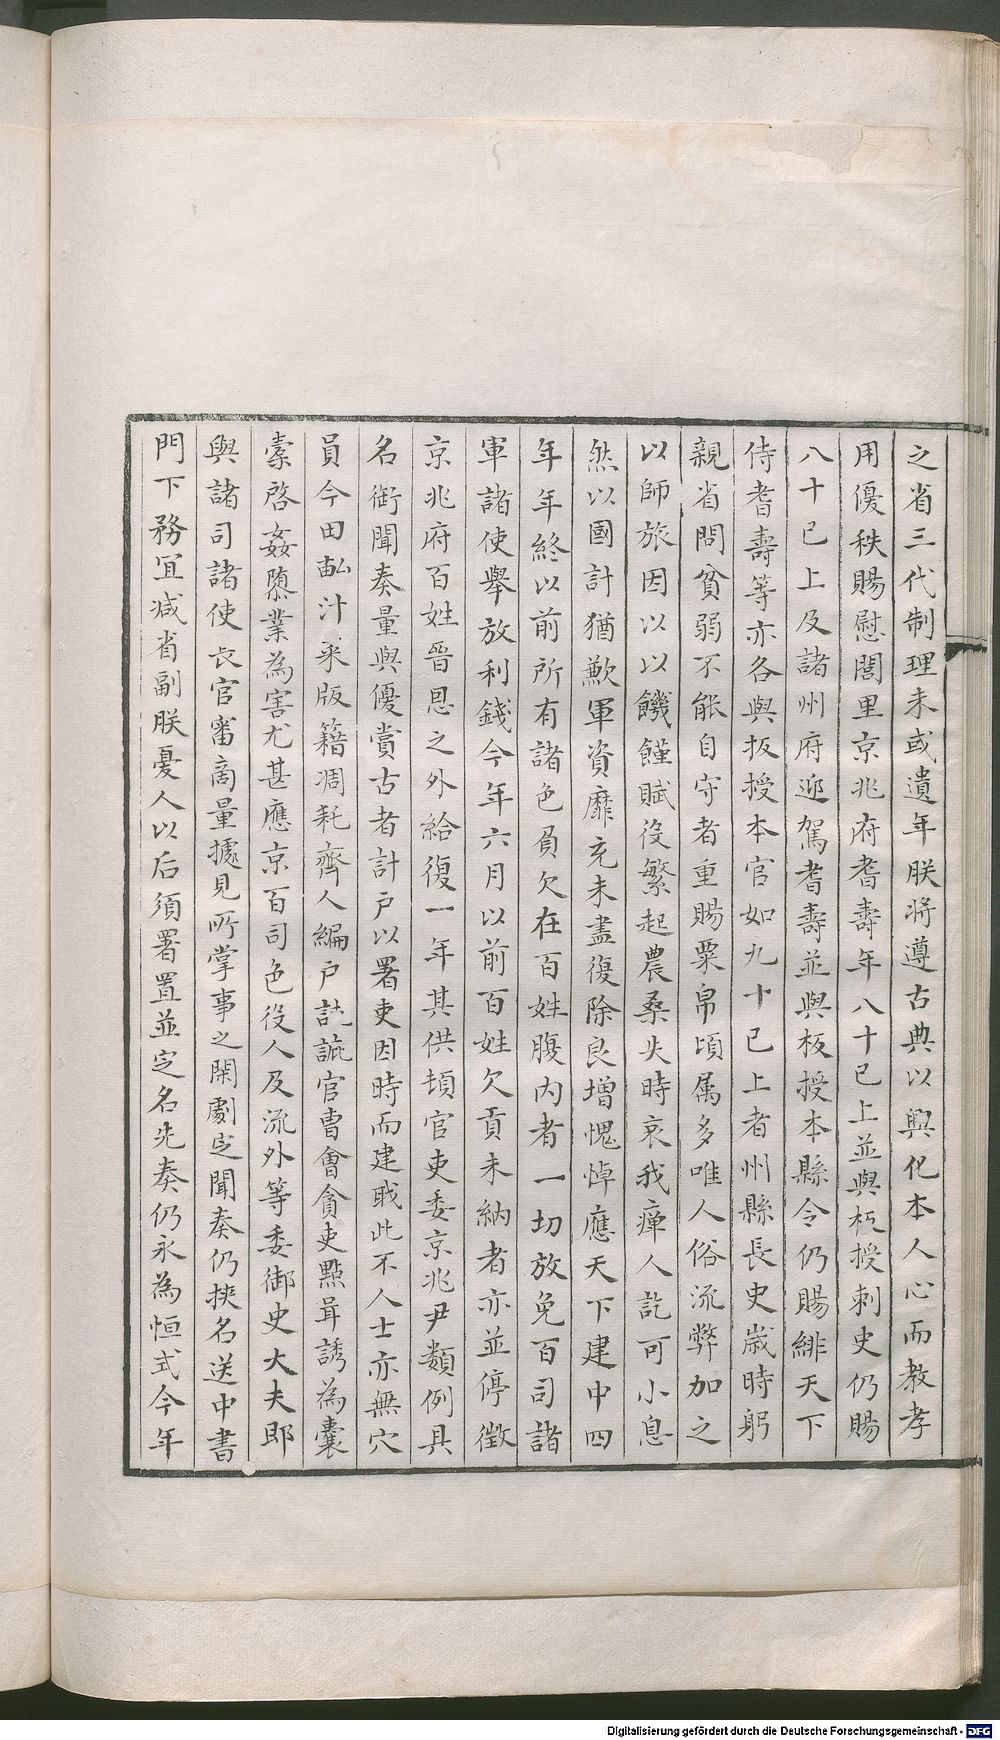 之省三代制理未或遺年朕將遵古典以興化本人心而教孝
用優秩賜慰閭里京兆府耆壽年八十已上並與板授刺史仍賜
八十已上及諸州府迎駕耆壽並與板授本縣令仍賜緋天下
侍耆壽等亦各與板授本官如九十已上者州縣長史歲時躬
親省問貧弱不能自守者重賜粟帛頃属多唯人俗流弊加之
以師旅因以以饑饉賦役繁起農桑失時哀我瘅人訖可小息
然以國計猶歉軍資靡充未盡復除良增愧悼應天下建中四
年年終以前所有諸色負欠在百姓腹内者一切放免百司諸
軍諸使舉放利錢今年六月以前百姓欠貢未納者亦並停徵
京兆府百姓晉恩之外給復一年其供頓官吏委京兆尹類例具
名銜聞奏量與優賞古者計戸以署吏因時而建戢此不人士亦無穴
員今田畆汁釆版籍凋耗齊人編戸託誣官曹會貪吏點茸誘為囊
槖啓姦隳業為害尤甚應京百司色役人及流外等委御史大夫郎
與諸司諸使長官審商量據見所掌事之閑劇定聞奏仍挾名送中書
門下務冝减省副朕憂人以后須署置並定名先奏仍永為恒式今年
Digitalisierung gefördert durch die Deutsche Forschungsgemeinschaft - DFG